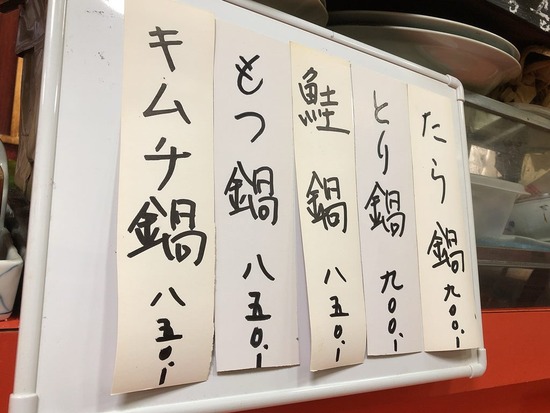 たら鍋 九〇〇.-
とり鍋 九〇〇.-
鮭鍋 八五〇.-
もつ鍋 八五〇.-
キムチ鍋 八五〇.-